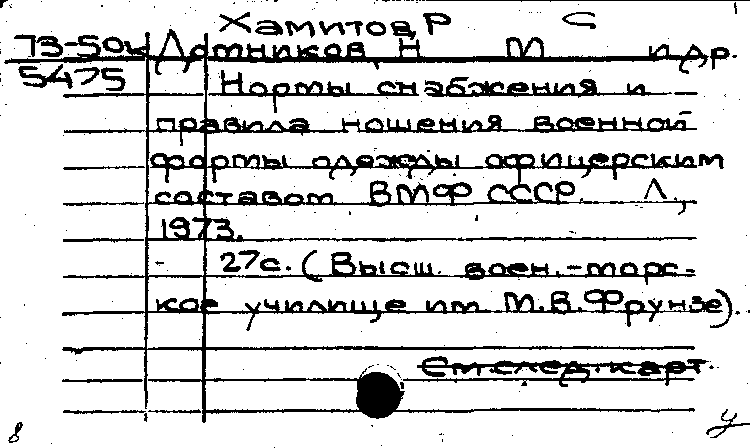 Хамитов, Р С
73-50к Лотников, Н М и др.
5475 Нормы снабжения и
правила ношения военной
формы одежды офицерским
составом ВМФ СССР. Л.,
1973.
- 27с. (Высш. воен.-морс-
кое училище им М.В.Фрунзе).
См.след.карт.
8 У